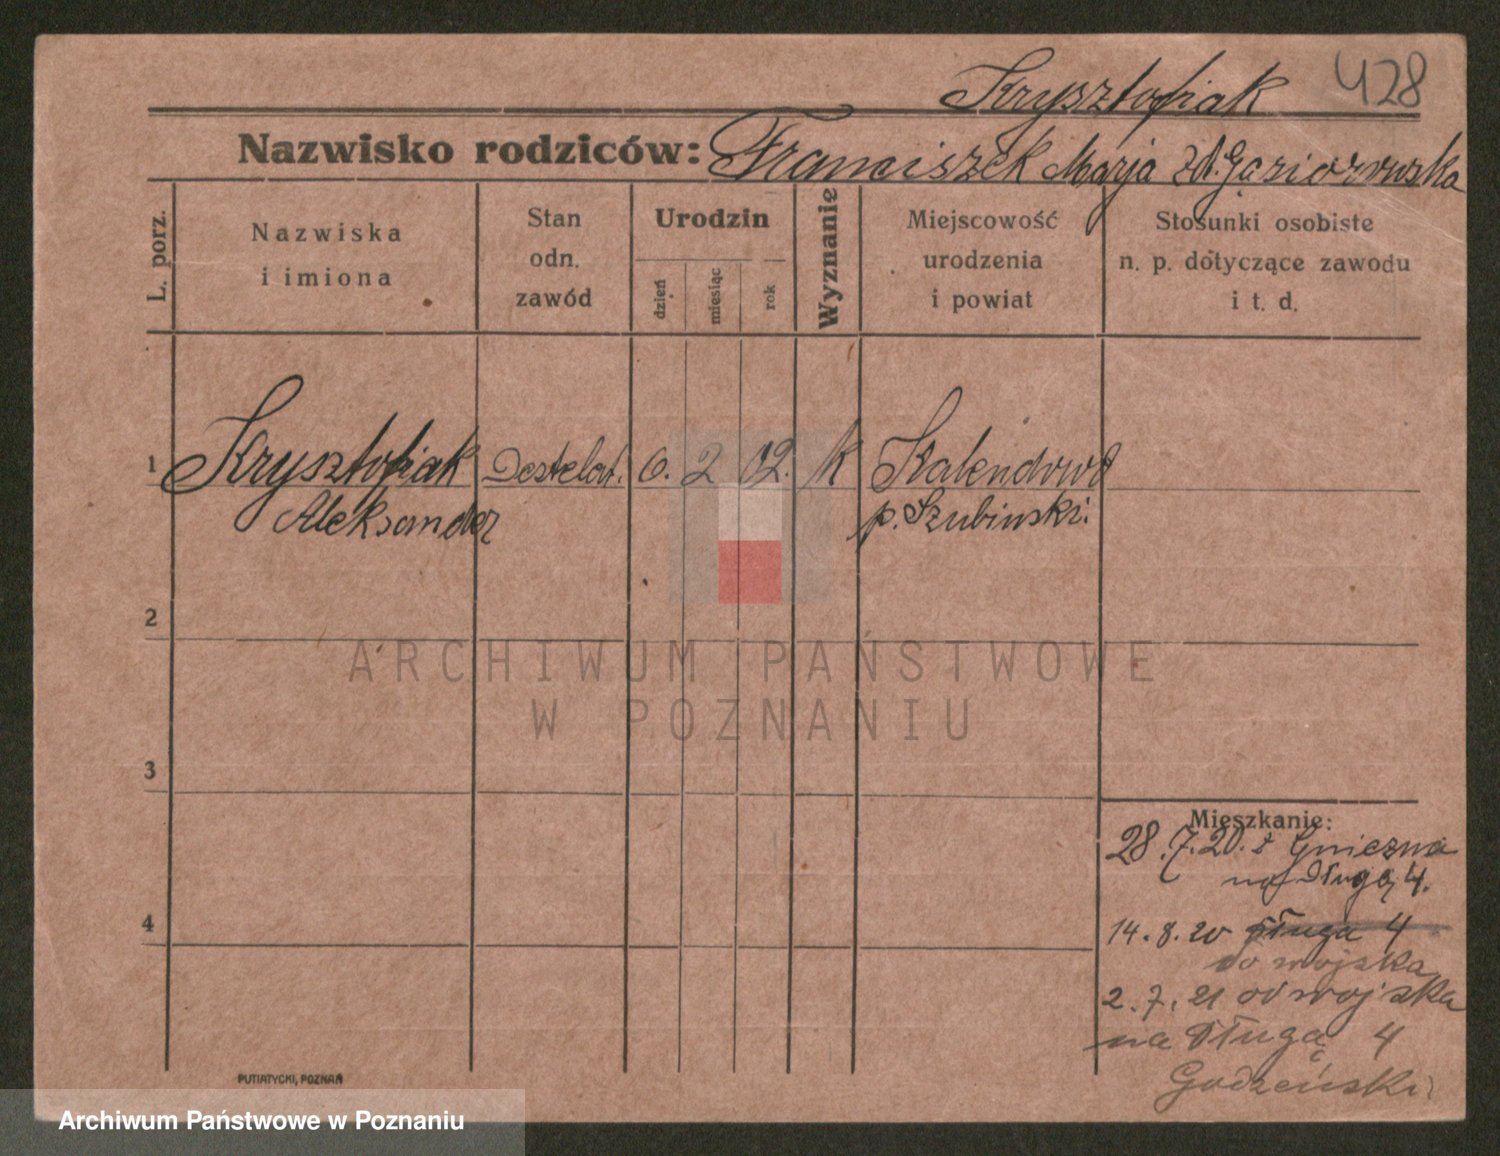 428
Krysztofiak
Nazwisko rodziców: Franciszek Marja zd. Gąsiorowska
L. porz.
Nazwiska
i imiona
Stan
odn.
zawód
Urodzin
dzień
miesiąc
rok
Wyznanie
Miejscowość
urodzenia
i powiat
Stosunki osobiste
n. p. dotyczące zawodu
i t. d.
1 Krysztofiak Destelat. 6. 2 02. k
Aleksander p. Szubinski.
2
3
4
Mieszkanie:
28.7.20. z Gniezna
na Długą 4.
14.8.20 Długa 4
do wojska
2.7.21 od wojska
na Długą 4
PUTIATYCKI, POZNAŃ
ARCHIWUM PAŃSTWOWE
W POZNANIU
Archiwum Państwowe w Poznaniu